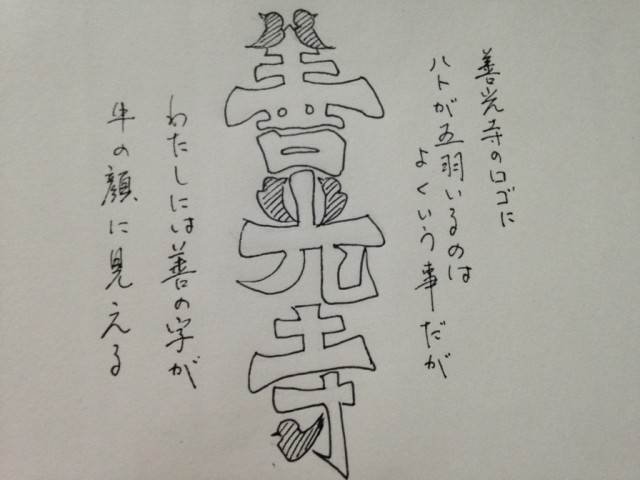 善光寺のロゴに
ハトが五羽いるのは
よくいう事だが
善光寺
わたしには善の字が
牛の顔に見える